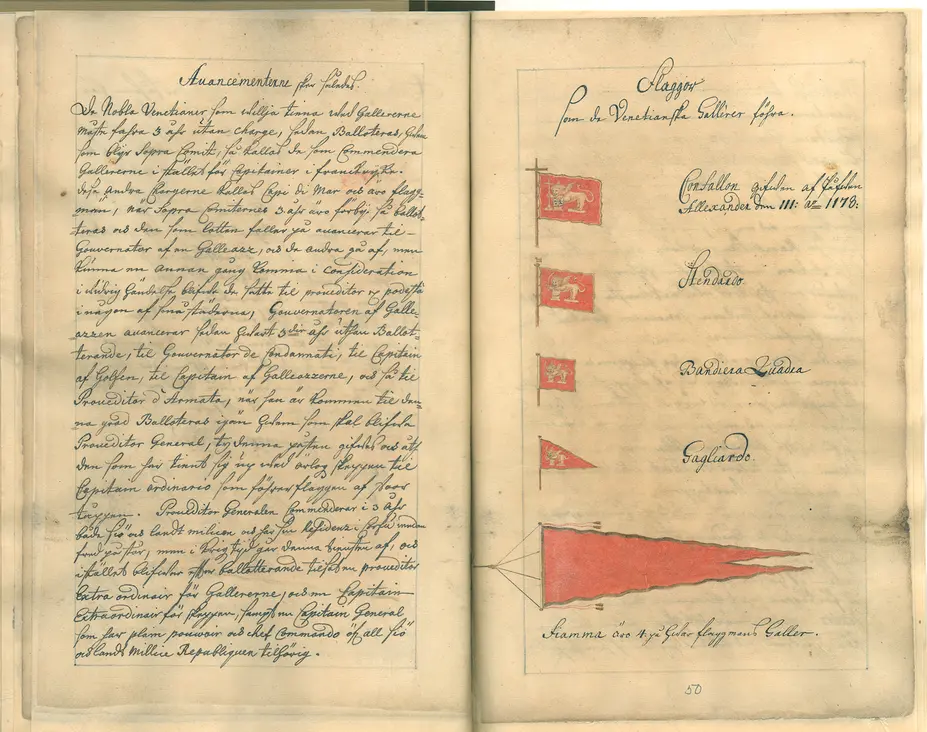 Avancementerne sker således.
De Noble Venetianer som willja tienna wid Gallererne
måste fahra 3 åhr utan charge, sedan Balloteras, hwem
som blijr Sopra Comit, så kallas de som Commendera
Gallererne i stället för Capitainer i franckrijke.
desse andra Chargerne kallas Capi di Mar och äro flagg=
män, när Sopra Comiternes 3 åhr äro förbij, så ballot=
teras och den som lotten faller på avancerar til
Gouvernator af en Galleazz, och de andra gå af, men
kunna en annan gång komma i Consideration
i hwilken händelse blifwa de satte til proveditor och podesta
i någon af små städerna, Gouvernatoren af Galle=
azzen avancerar sedan hwart 3die åhr uthan Ballot=
terande, til Gouvernator de Condannati, til Capitain
af Golfen, til Capitain af Galleazzerne, och så til
Proveditor d'Armata, när han är kommen til den=
na grad Balloteras igen hwem som skal blifwa
Proveditor General, ty denna påsten gifwes och åth
den som har tient sig up wid örlog skeppen til
Capitain ordinario som förer flaggen af stoor
tuppen. Proveditor Generalen Commenderar i 3 åhr
både siö och landt milicen och har sin Residenz i Corfu
men i krigstijd går denna tienste af, och
i stället blifwer ballotterande tilsatt en proveditor
Extra ordinair för Gallererne, och en Capitain
Extraordinair för skeppen, sampt en Capitain General
som har plein pouvoir och chef Commando öf. all siö
och landt Millice Republiquen tilhörig.
Flaggor
som de Venetianska Gallerer föhra.
Confallon gifwen af Påfwen
Allexander den III: Ao 1178:
Stendardo.
Bandiera Quadra
Gagliardo.
Fiamma äro 4 på hwar flaggmans Galler.
50